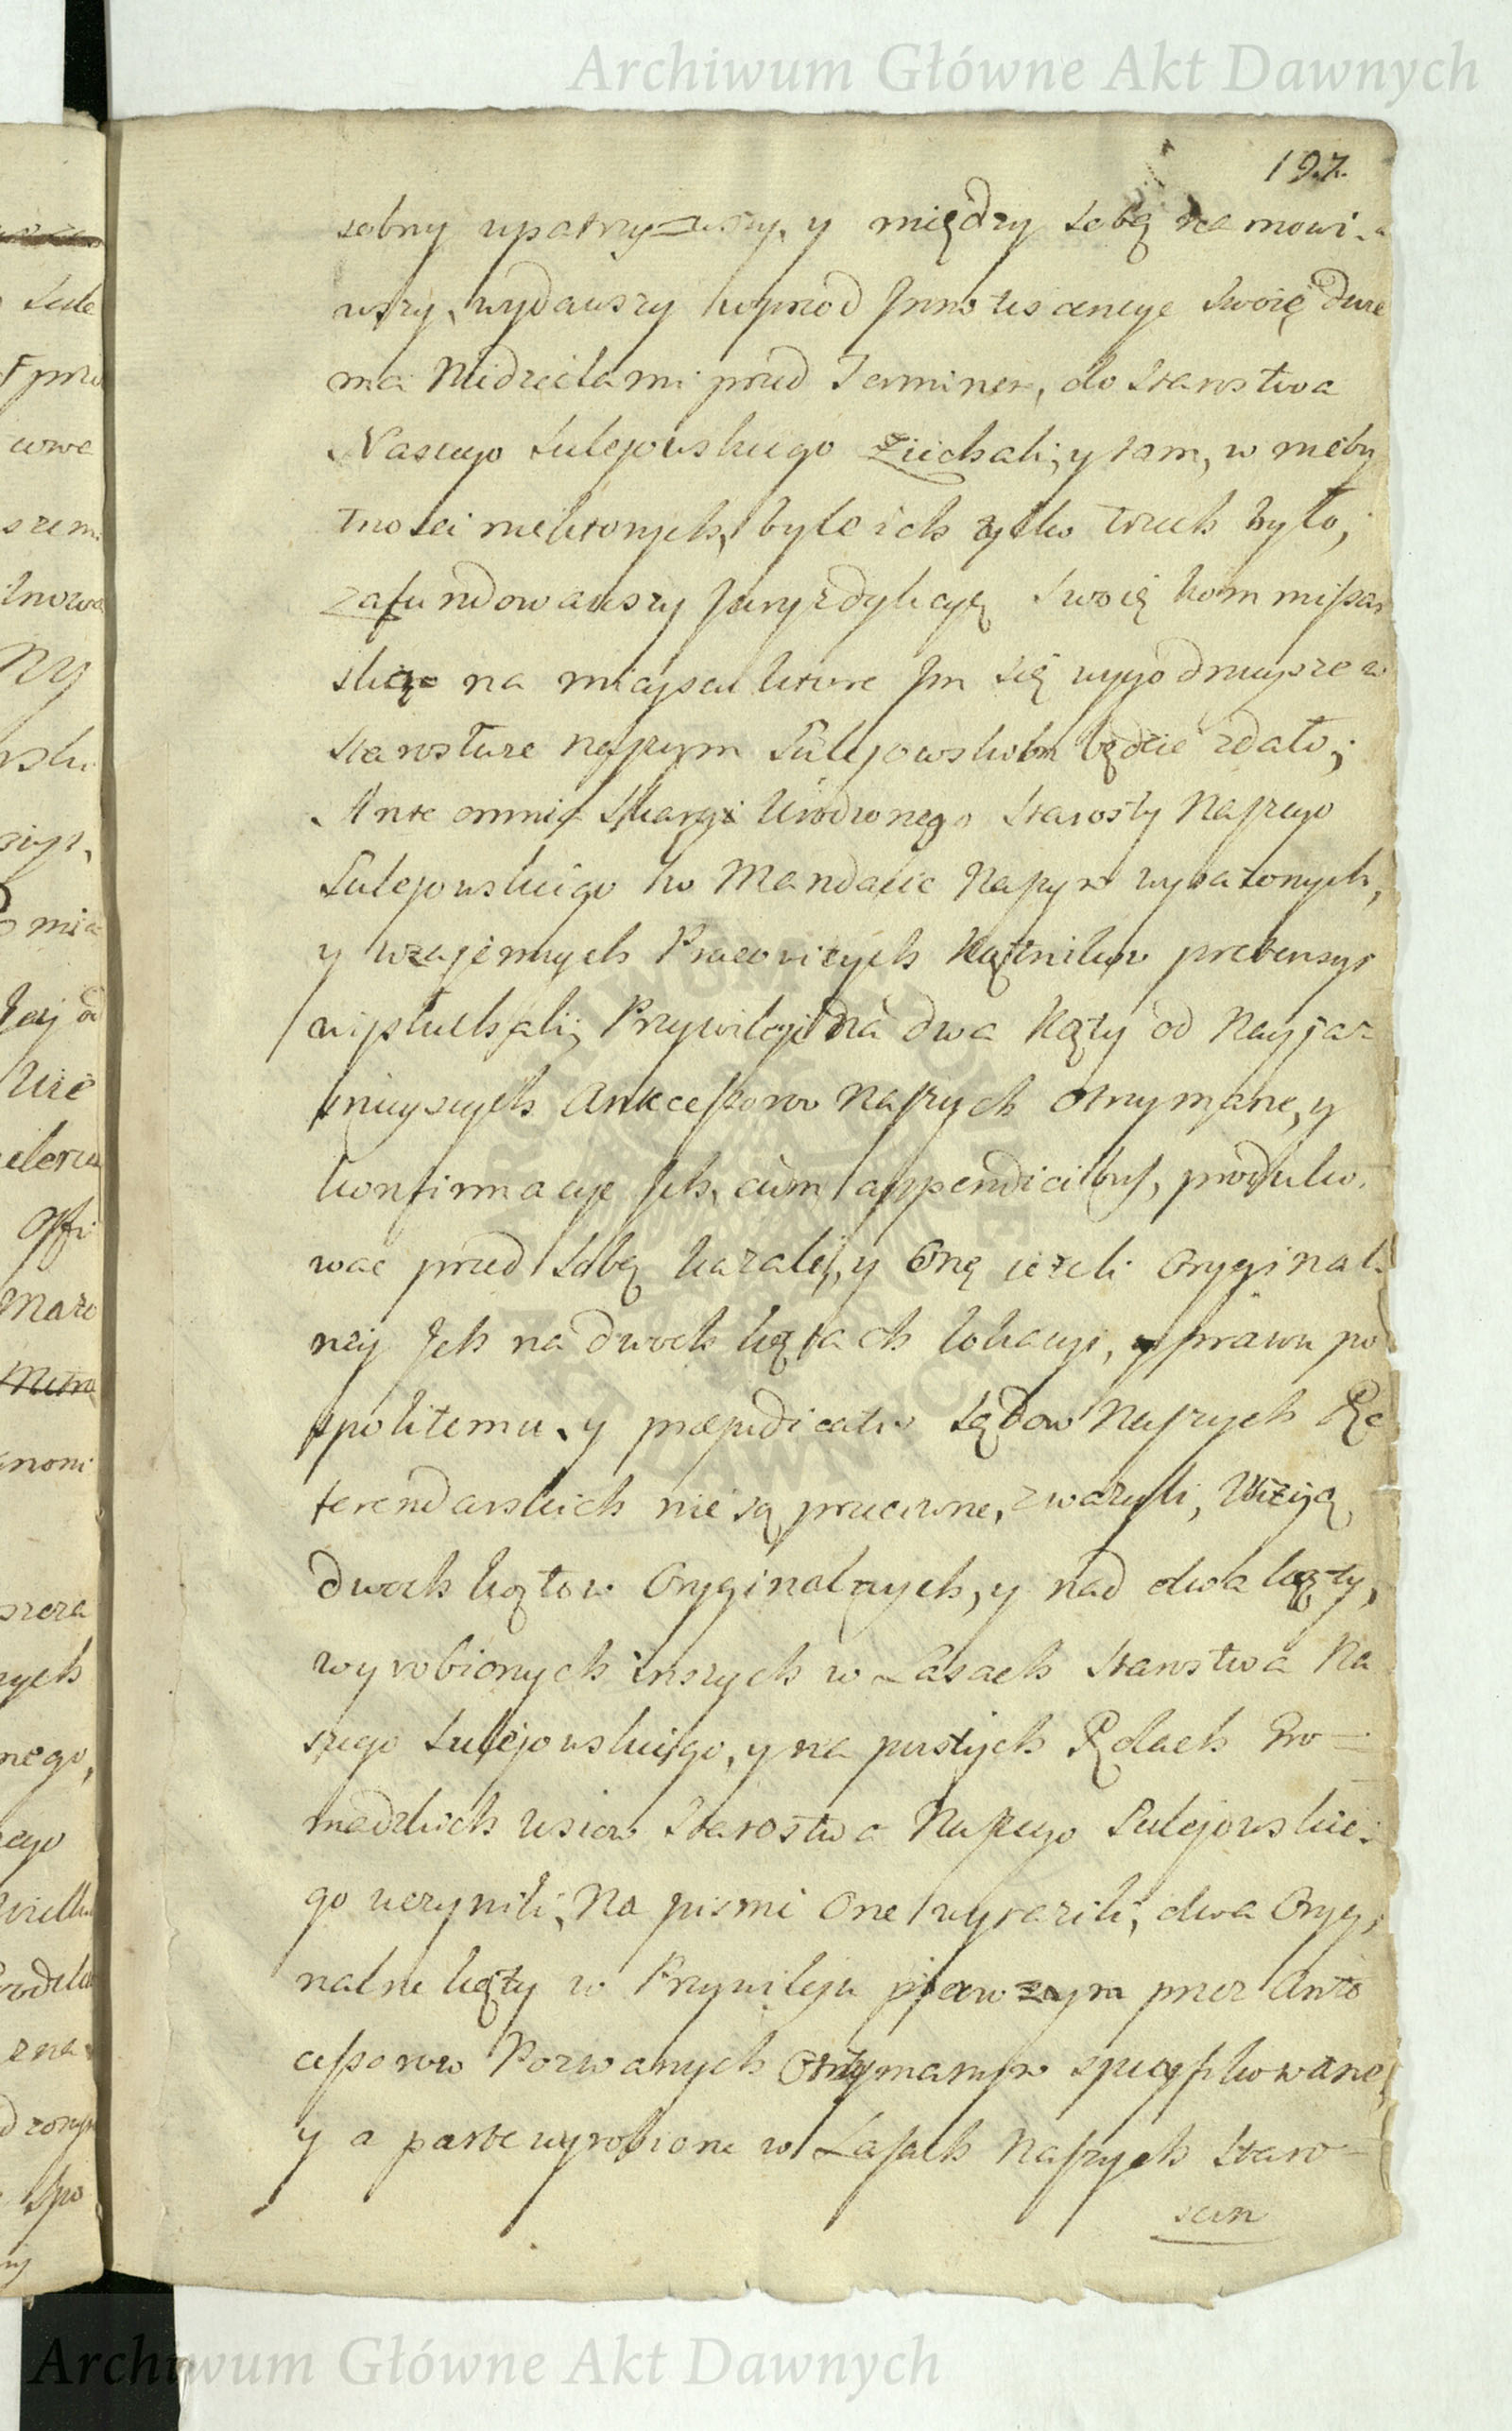 Archiwum Główne Akt Dawnych
197.
sobny upatrzywszy, y między sobą namowi-
wszy, wydawszy wprzod Innotescencye swoię dwie
ma Niedzielami przed Terminem, do Starostwa
Naszego Sulejowskiego ziechali, y tam, w nieby
tności niektorych, byle ich tylko trzech było,
zafundowawszy Juryzdykcyą swoię kommissar
ską na mieyscu ktore Im się wygodnieysze w
Starostwie naszym Sulejowskim będzie zdało;
Ante omnia skargi Urodzonego Starosty Naszego
Sulejowskiego w Mandacie Naszym wyrażonych,
y wzajemnych Pracowitych Kątnikow pretensyi
wysłuchali, Przywileje na dwa Kąty od Nayja-
śnieyszych Antecessorow Naszych otrzymane, y
konfirmacye Ich, cum appendicibus, produko-
wac przed sobą kazali, y Onę ieżeli Oryginal-
ney Ich na dwoch kątach lokacyi, y prawu po
spolitemu, y præjudicatis Sądow Naszych Re
ferendarskich nie są przeciwne, zważyli, Wizyą
dwoch kątow Oryginalnych, y nad dwa kąty,
wyrobionych inszych w Lasach Starostwa Na
szego Sulejowskiego, y na pustych Rolach Gro-
madzkich wsiow Starostwa Naszego Sulejowskie-
go uczynili, Na pismie One wyrazili, dwa Orygi
nalne kąty w Przywileju pierwszym przez Ante
cessorow Pozwanych Otrzymanym specyfikowane,
y a parte wyrobione w Lasach Naszych Staro-
scin
Archiwum Główne Akt Dawnych